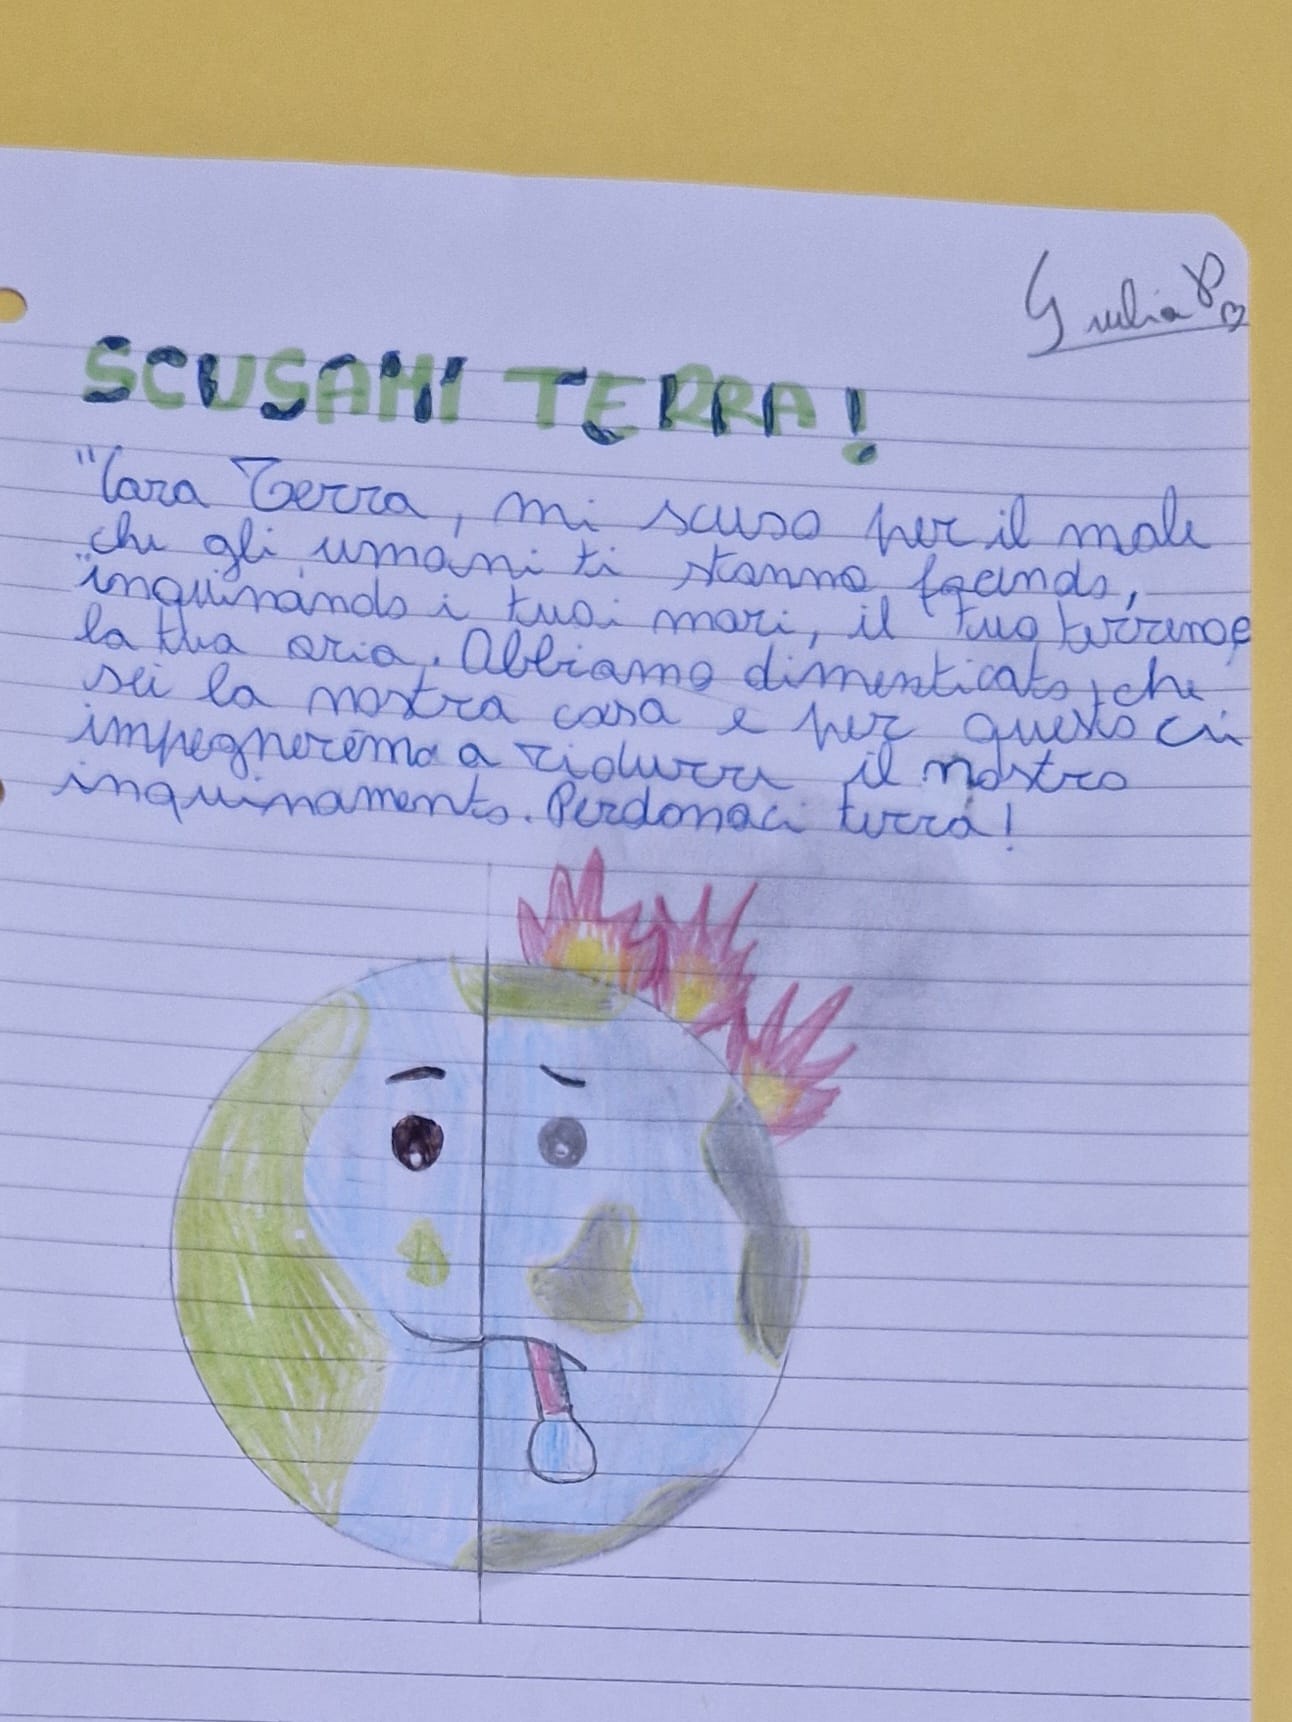 Giulia P.
SCUSAMI TERRA!
"Cara Terra, mi scuso per il male
che gli umani ti stanno facendo,
"inquinando i tuoi mari, il tuo terreno e
la tua aria. Abbiamo dimenticato, che
sei la nostra casa e per questo ci
impegneremo a ridurre il nostro
inquinamento. Perdonaci terra!